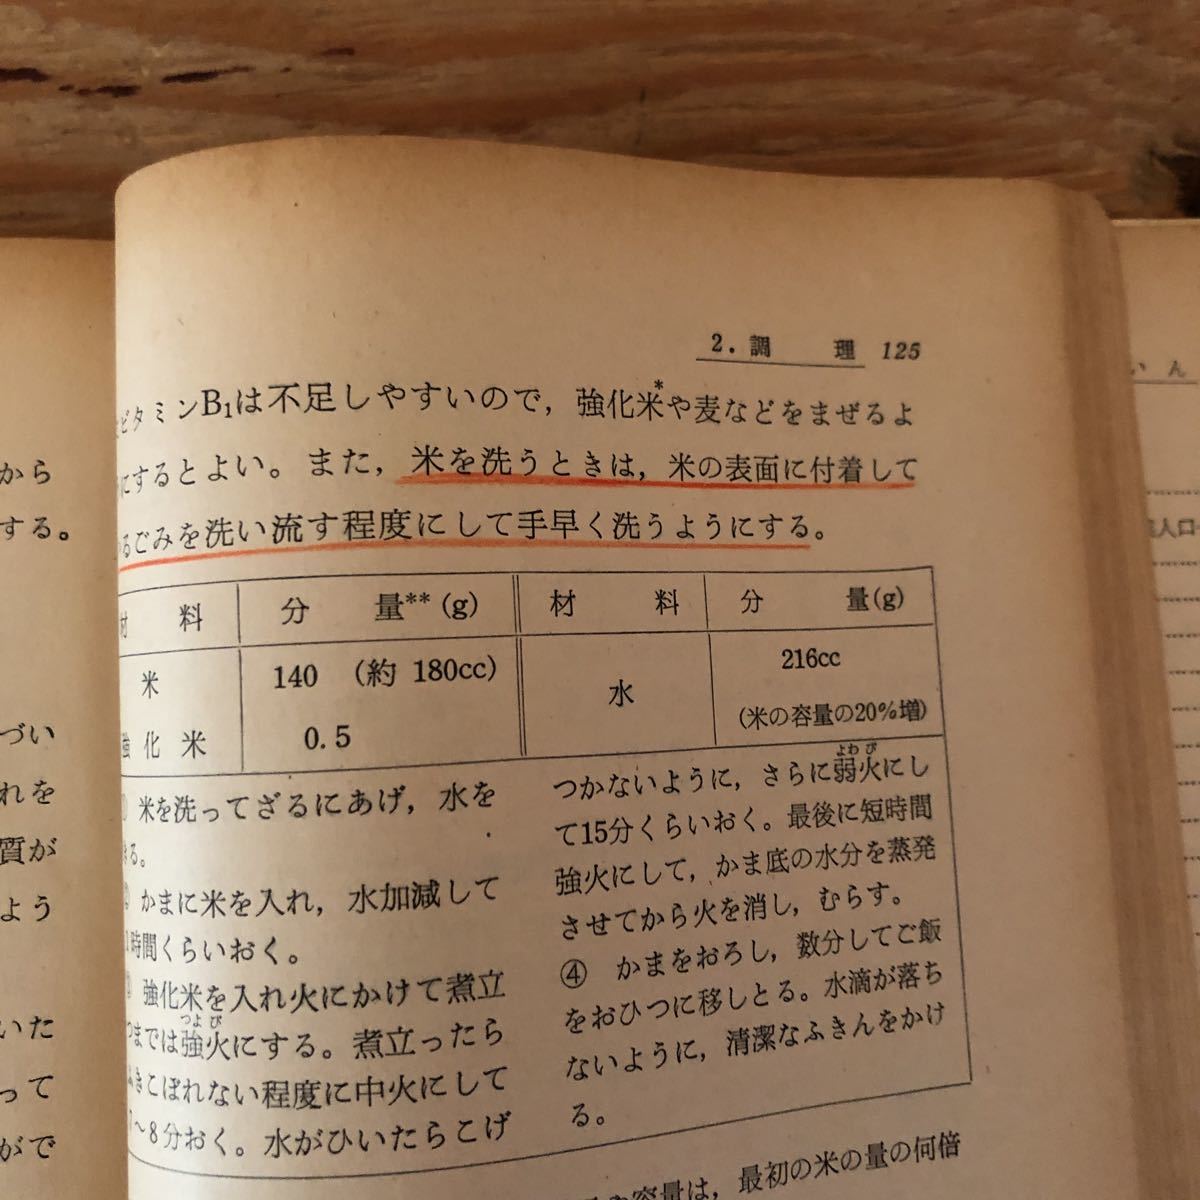 2. 調 理 125
ビタミンB₁は不足しやすいので，強化米*や麦などをまぜるよ
にするとよい。また，米を洗うときは，米の表面に付着して
るごみを洗い流す程度にして手早く洗うようにする。
材 料 分 量** (g) 材 料 分 量(g)
米 140 (約 180cc) 水 216cc
(米の容量の20%増)
強 化 米 0.5
米を洗ってざるにあげ，水を
きる。
かまに米を入れ，水加減して
時間くらいおく。
強化米を入れ火にかけて煮立
つよ び
つまでは強火にする。煮立ったら
ふきこぼれない程度に中火にして
〜8分おく。水がひいたらこげ
よわ び
つかないように，さらに弱火にし
て15分くらいおく。最後に短時間
強火にして，かま底の水分を蒸発
させてから火を消し，むらす。
④ かまをおろし，数分してご飯
をおひつに移しとる。水滴が落ち
ないように，清潔なふきんをかけ
る。
容量は，最初の米の量の何倍
から
する。
づい
れを
質が
よう
いた
って
がで
いん
人口